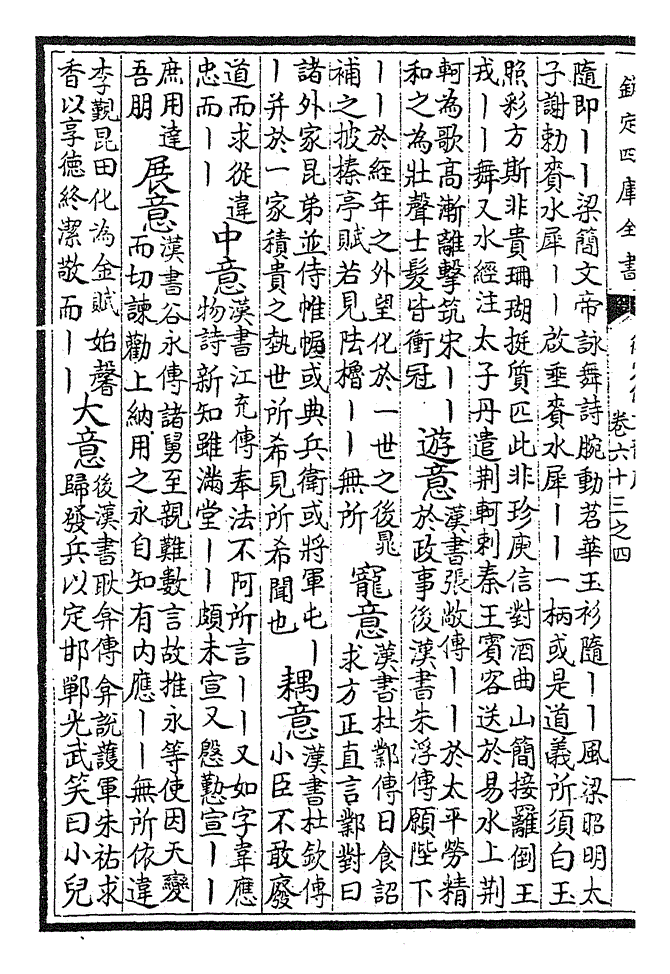 欽定四庫全書
卷六十三之四
隨即丨丨梁簡文帝詠舞詩腕動苕華玉衫隨丨丨風梁昭明太
子謝勅賚水犀丨丨啟垂賚水犀丨丨一柄或是道義所須白玉
照彩方斯非貴珊瑚挺質匹此非珍庾信對酒曲山簡接䍦倒王
戎丨丨舞又水經注太子丹遣荆軻刺秦王賓客送於易水上荆
軻為歌高漸離擊筑宋丨丨
和之為壯聲士髮皆衝冠
遊意
漢書張敞傳丨丨於太平勞精
於政事後漢書朱浮傳願陛下
丨丨於經年之外望化於一世之後晁
補之披榛亭賦若見陆櫓丨丨無所
寵意
漢書杜鄴傳日食詔
求方正直言鄴對曰
諸外家昆弟並侍帷幄或典兵衛或將軍屯丨
丨并於一家積貴之埶世所希見所希聞也
耦意
漢書杜欽傳
小臣不敢廢
道而求從違
忠而丨丨
中意
漢書江充傳奉法不阿所言丨丨又如字韋應
物詩新知雖滿堂丨丨頗未宣又慇懃宣丨丨
庶用達
吾朋
展意
漢書谷永傳諸舅至親難數言故推永等使因天變
而切諫勸上納用之永自知有内應丨丨無所依違
李覯昆田化為金賦始馨
香以享德終潔敬而丨丨
大意
後漢書耿弇傳弇說護軍朱祐求
歸發兵以定邯鄲光武笑曰小兒